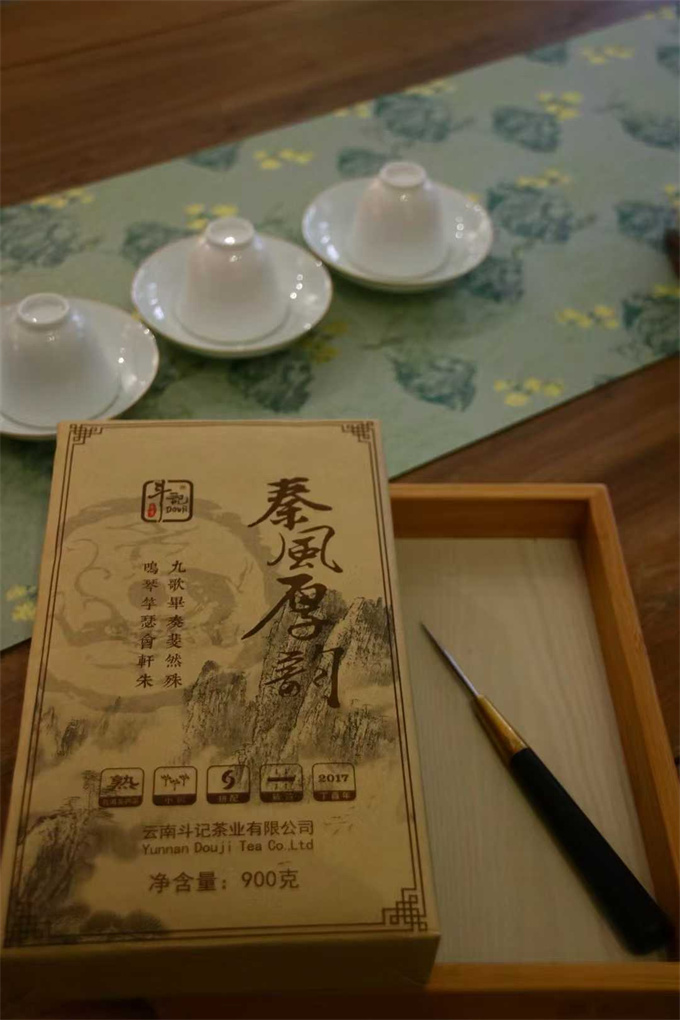 斗記
DOUJI
秦風厚韻
九歌畢奏斐然殊
鳴琴竽瑟會軒朱
熟
2017
丁酉年
云南斗记茶业有限公司
Yunnan Douji Tea Co.Ltd
净含量：900克